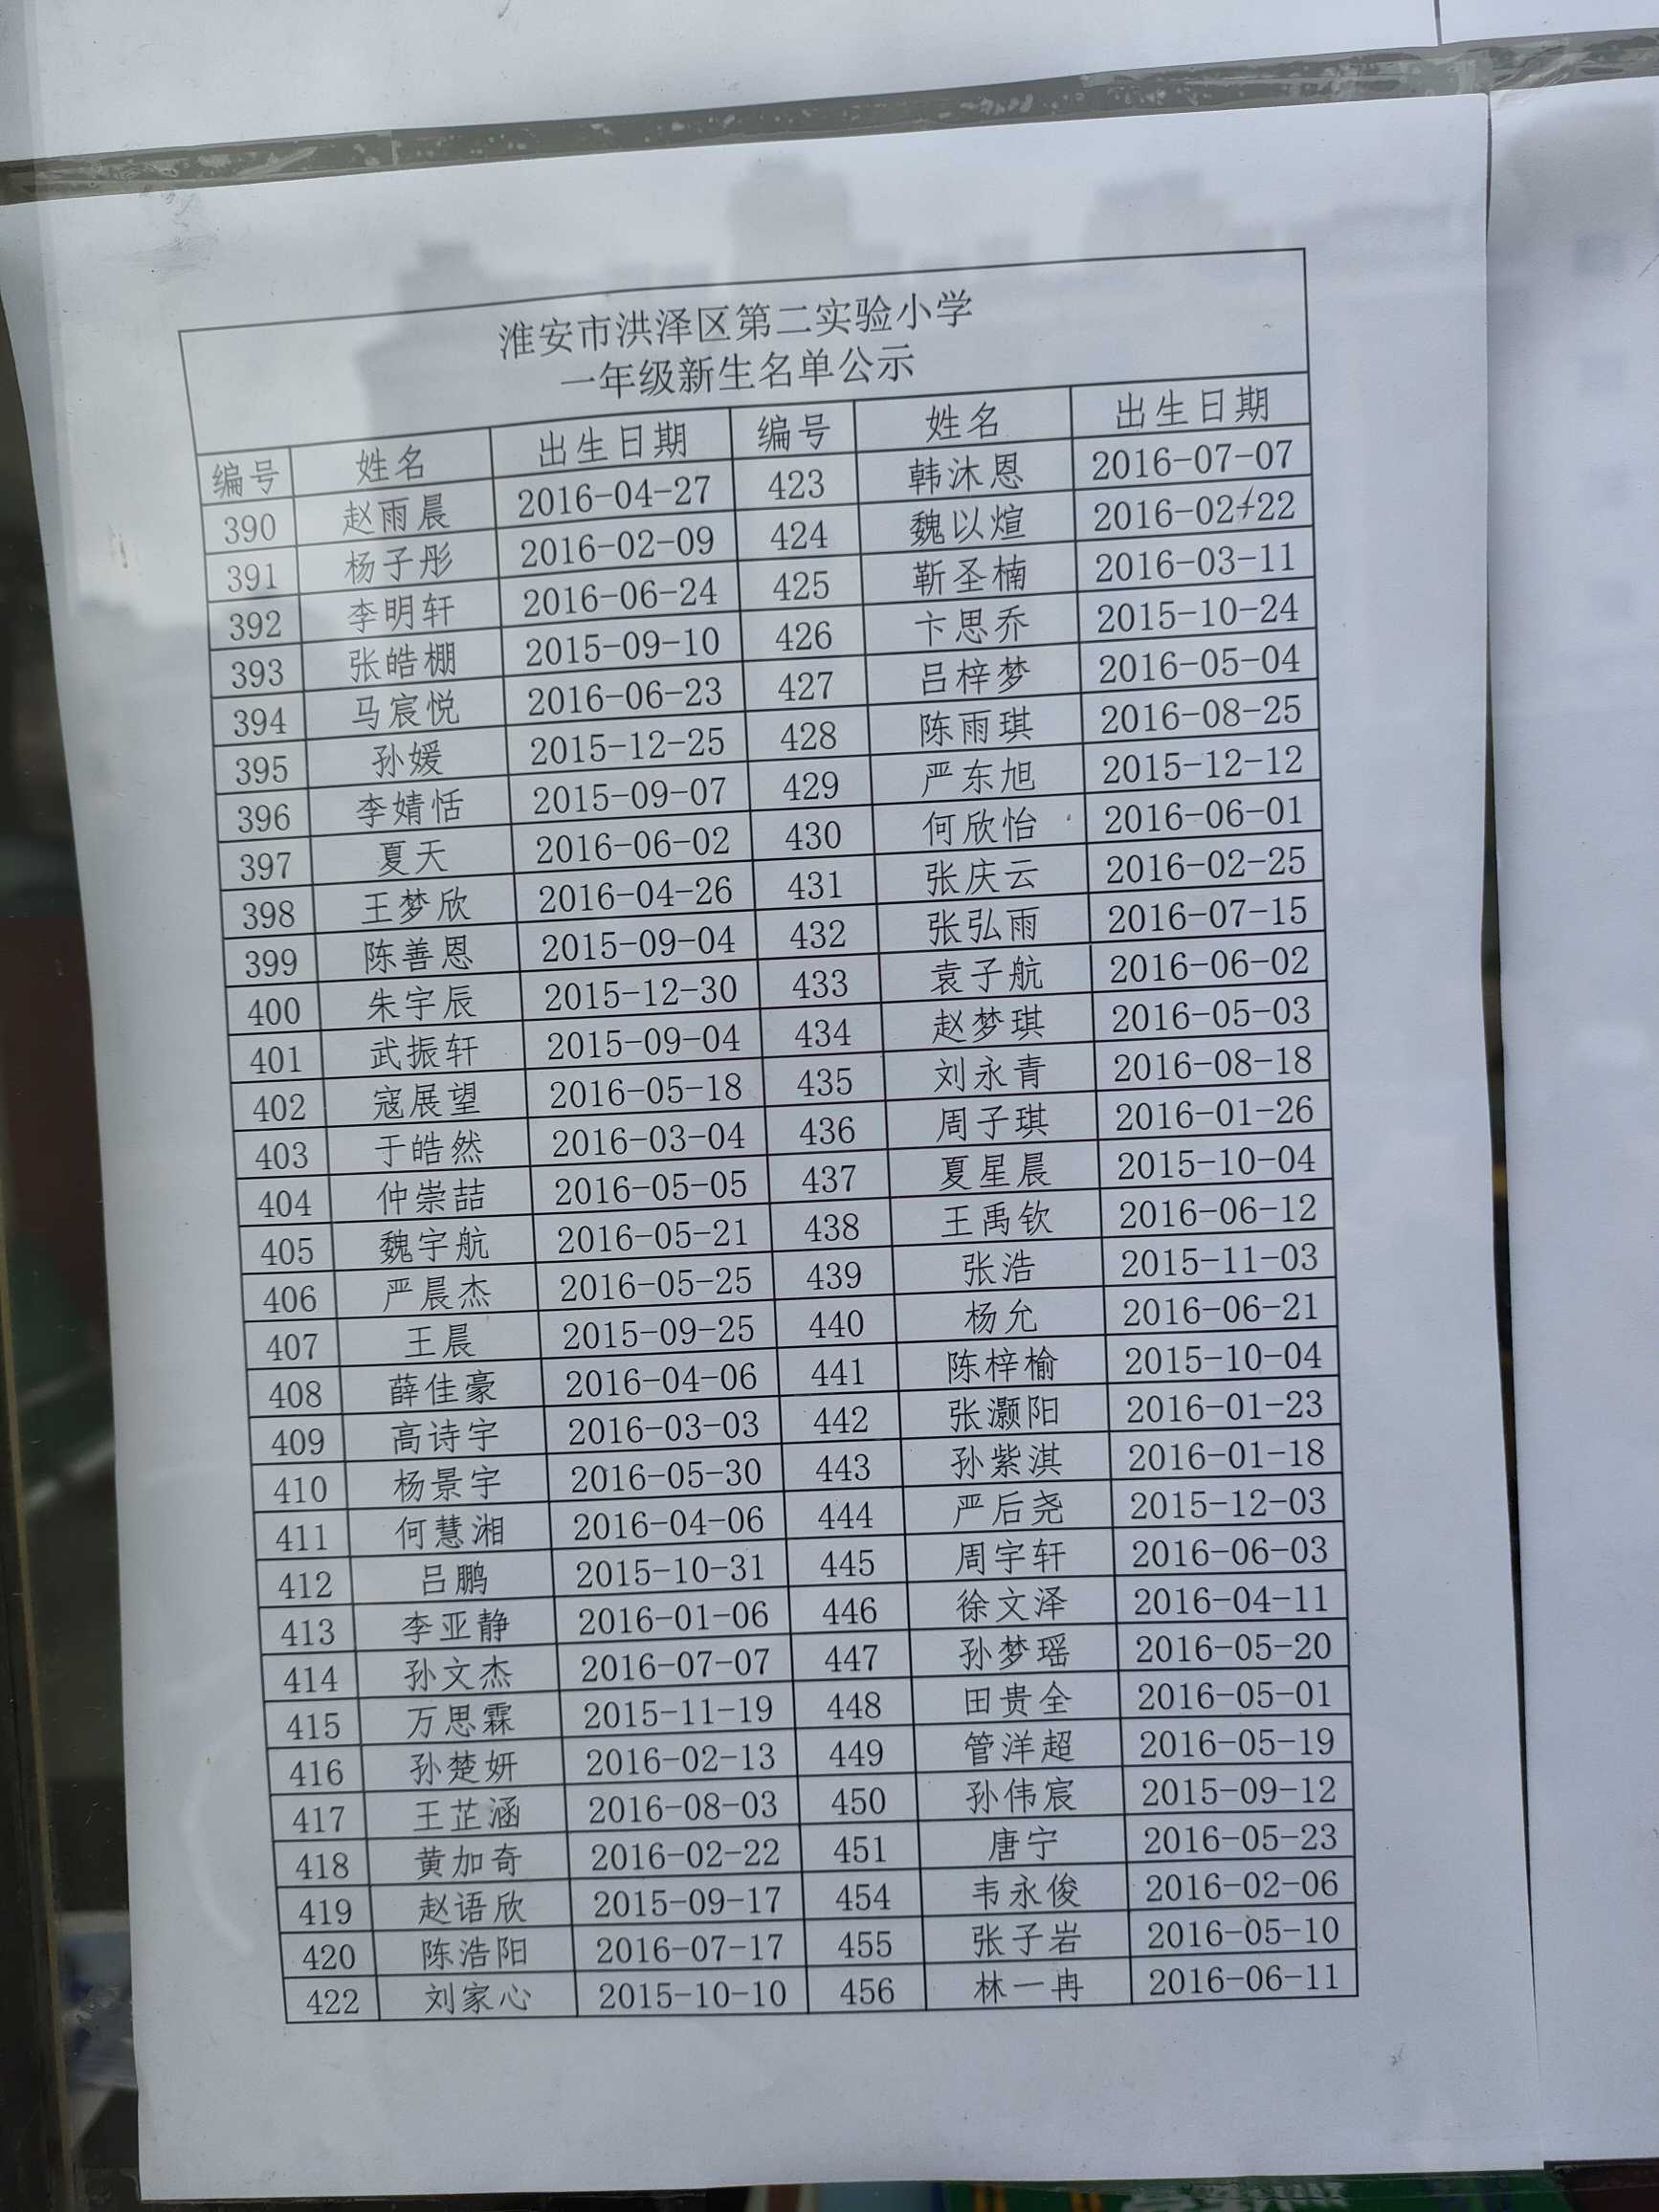 淮安市洪泽区第二实验小学
一年级新生名单公示
编号 姓名 出生日期 编号 姓名 出生日期
390 赵雨晨 2016-04-27 423 韩沐恩 2016-07-07
391 杨子彤 2016-02-09 424 魏以煊 2016-02-22
392 李明轩 2016-06-24 425 靳圣楠 2016-03-11
393 张皓棚 2015-09-10 426 卞思乔 2015-10-24
394 马宸悦 2016-06-23 427 吕梓梦 2016-05-04
395 孙媛 2015-12-25 428 陈雨琪 2016-08-25
396 李婧恬 2015-09-07 429 严东旭 2015-12-12
397 夏天 2016-06-02 430 何欣怡 2016-06-01
398 王梦欣 2016-04-26 431 张庆云 2016-02-25
399 陈善恩 2015-09-04 432 张弘雨 2016-07-15
400 朱宇辰 2015-12-30 433 袁子航 2016-06-02
401 武振轩 2015-09-04 434 赵梦琪 2016-05-03
402 寇展望 2016-05-18 435 刘永青 2016-08-18
403 于皓然 2016-03-04 436 周子琪 2016-01-26
404 仲崇喆 2016-05-05 437 夏星晨 2015-10-04
405 魏宇航 2016-05-21 438 王禹钦 2016-06-12
406 严晨杰 2016-05-25 439 张浩 2015-11-03
407 王晨 2015-09-25 440 杨允 2016-06-21
408 薛佳豪 2016-04-06 441 陈梓榆 2015-10-04
409 高诗宇 2016-03-03 442 张灏阳 2016-01-23
410 杨景宇 2016-05-30 443 孙紫淇 2016-01-18
411 何慧湘 2016-04-06 444 严后尧 2015-12-03
412 吕鹏 2015-10-31 445 周宇轩 2016-06-03
413 李亚静 2016-01-06 446 徐文泽 2016-04-11
414 孙文杰 2016-07-07 447 孙梦瑶 2016-05-20
415 万思霖 2015-11-19 448 田贵全 2016-05-01
416 孙楚妍 2016-02-13 449 管洋超 2016-05-19
417 王芷涵 2016-08-03 450 孙伟宸 2015-09-12
418 黄加奇 2016-02-22 451 唐宁 2016-05-23
419 赵语欣 2015-09-17 454 韦永俊 2016-02-06
420 陈浩阳 2016-07-17 455 张子岩 2016-05-10
422 刘家心 2015-10-10 456 林一冉 2016-06-11